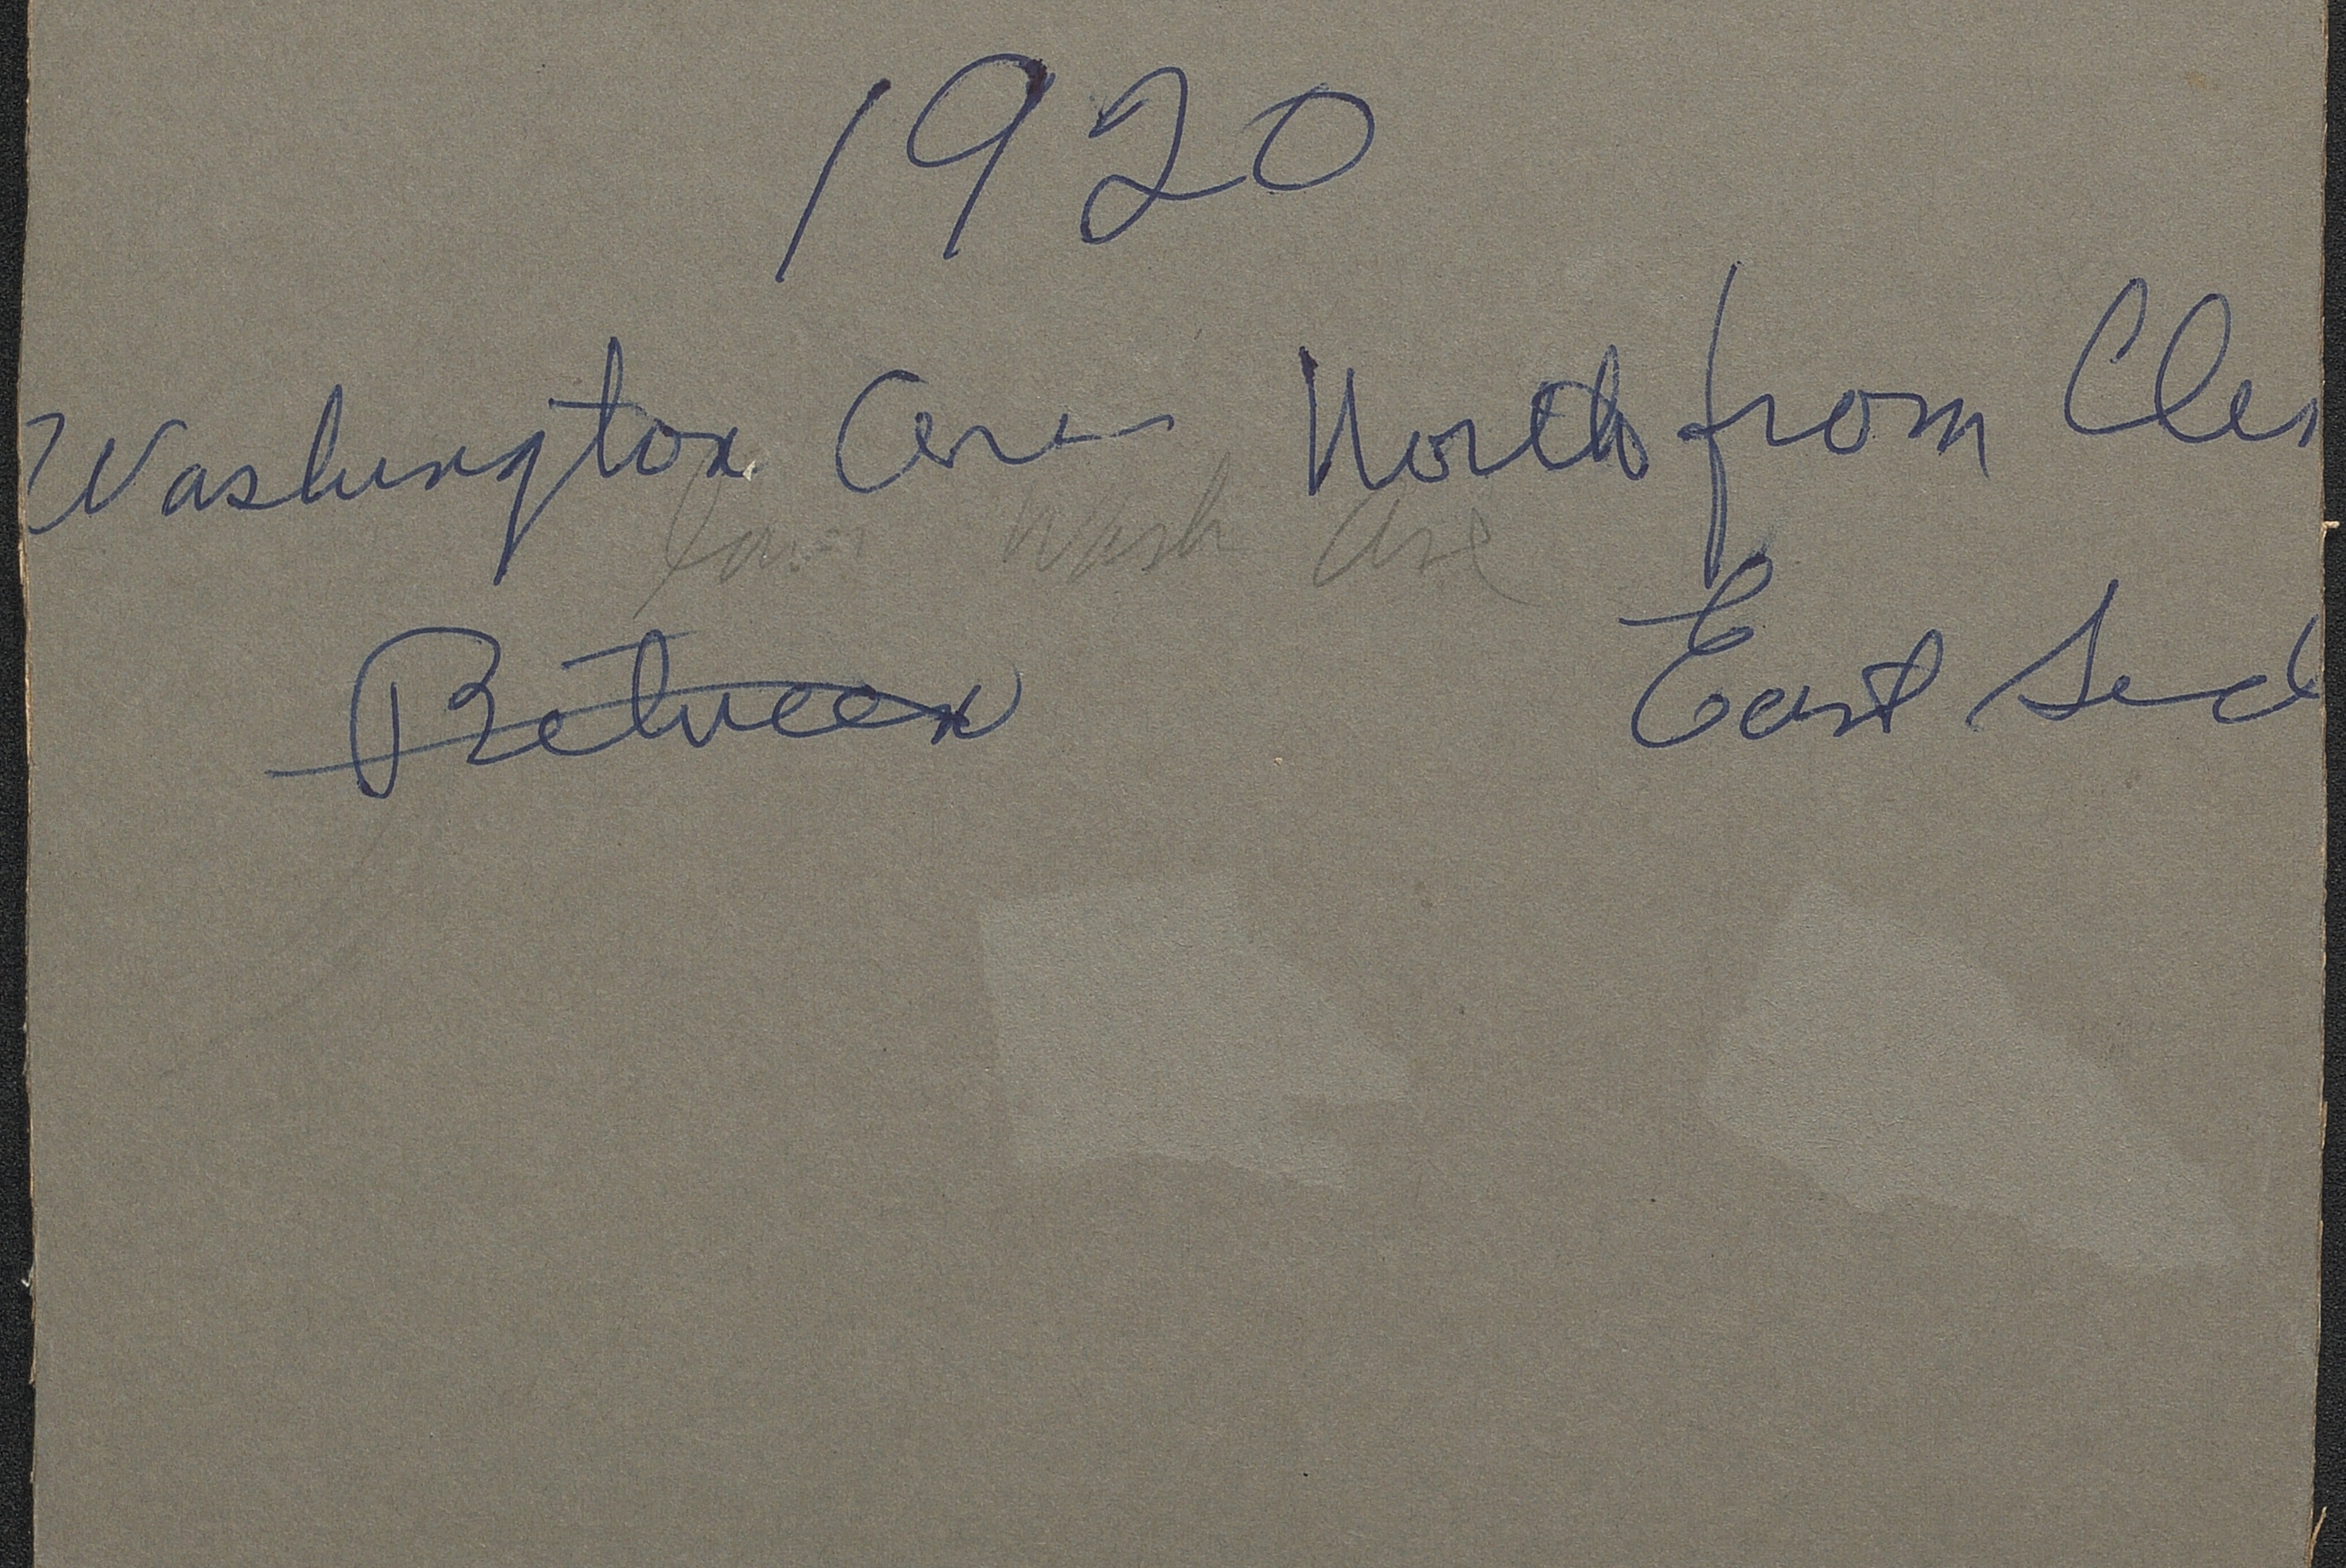 1920
Washington Ave North from Cle
Wash Ave
Between East Sid